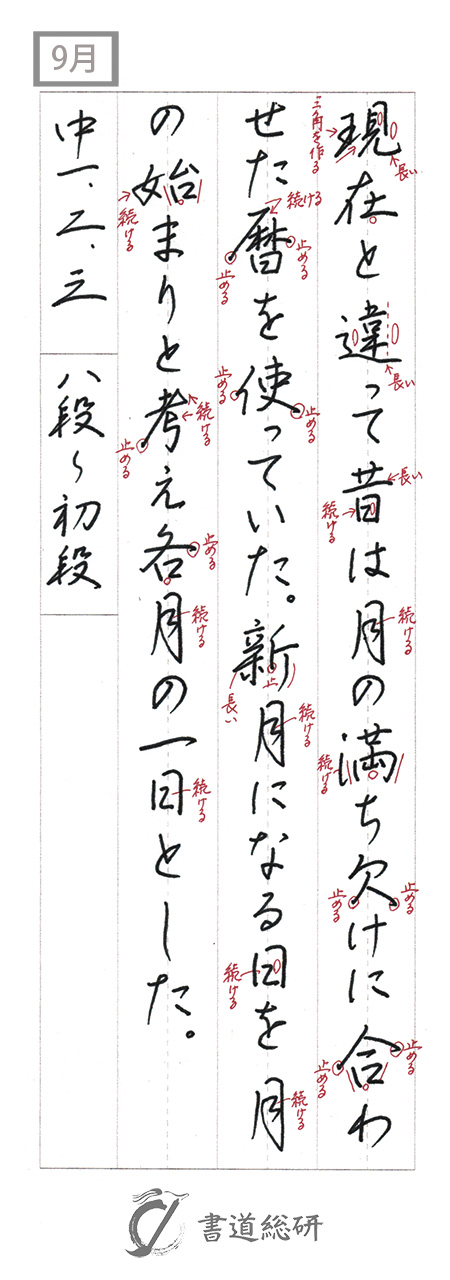 9月
現在と違って昔は月の満ち欠けに合わ
せた暦を使っていた。新月になる日を月
の始まりと考え各月の一日とした。
中一、二、三
八段〜初段
三角を作る
長い
長い
長い
続ける
続ける
続ける
止める
止める
止める
止める
続ける
止める
止める
止める
止める
長い
止
続ける
続ける
続ける
続ける
続ける
止める
止める
続ける
続ける
書道総研